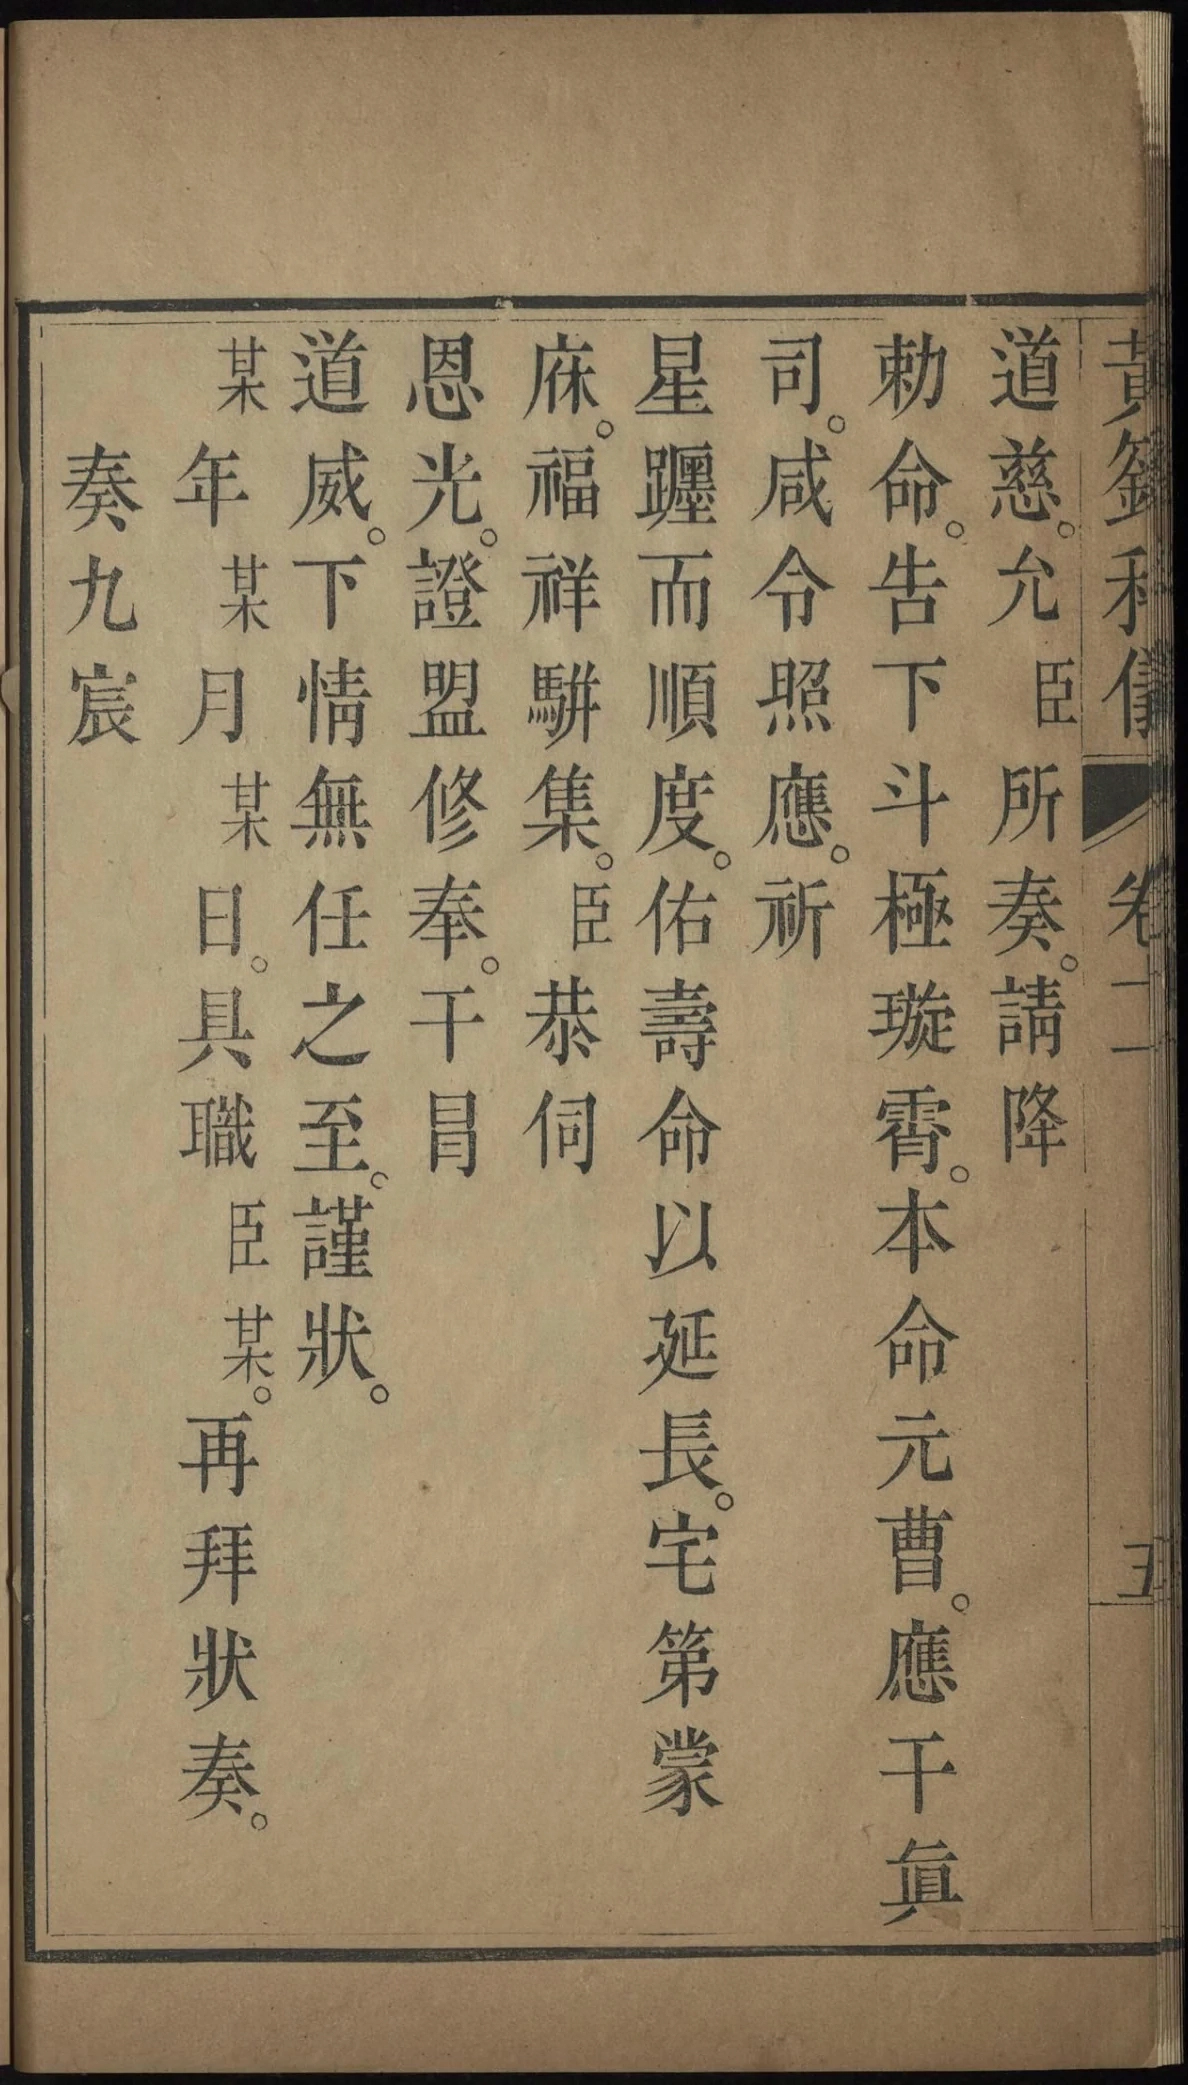 黃籙科儀 卷十一 五
道慈。允臣所奏。請降
勅命。告下斗極璇霄。本命元曹。應干眞
司。咸令照應。祈
星躔而順度。佑壽命以延長。宅第蒙
庥。福祥駢集。臣恭伺
恩光。證盟修奉。干冐
道威。下情無任之至。謹狀。
某年某月某日。具職臣某。再拜狀奏。
奏九宸